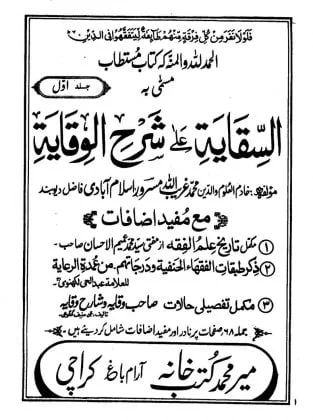 فَلَوْلَا نَفَرَ مِنْ كُلِّ فِرْقَةٍ مِنْهُمْ طَائِفَةٌ لِيَتَفَقَّهُوا فِي الدِّيْنِ
الحمد للہ والمنہ کہ کتاب مستطاب
مسمّٰی بہ
جلد اوّل
السِّقَايَة عَلٰى شَرْحِ الوِقَايَة
مؤلفہ: خادم العلوم والدین محمد غریب اللہ مسرور اسلام آبادی فاضل دیوبند
مع مفید اضافات
① مکمل تاریخ علم الفقہ از مفتی سید محمد عمیم الاحسان صاحب۔
② ذکر طبقات الفقہاء الحنفیۃ ودرجاتھم۔ من عمدۃ الرعایۃ
للعلامۃ عبدالحی لکھنویؒ۔
③ مکمل تفصیلی حالات صاحب وقایہ وشارح وقایہ
جملہ ۶۸ صفحات پر نادر اور مفید اضافات شامل کر دیئے ہیں۔
میر محمد کتب خانہ آرام باغ کراچی
۱